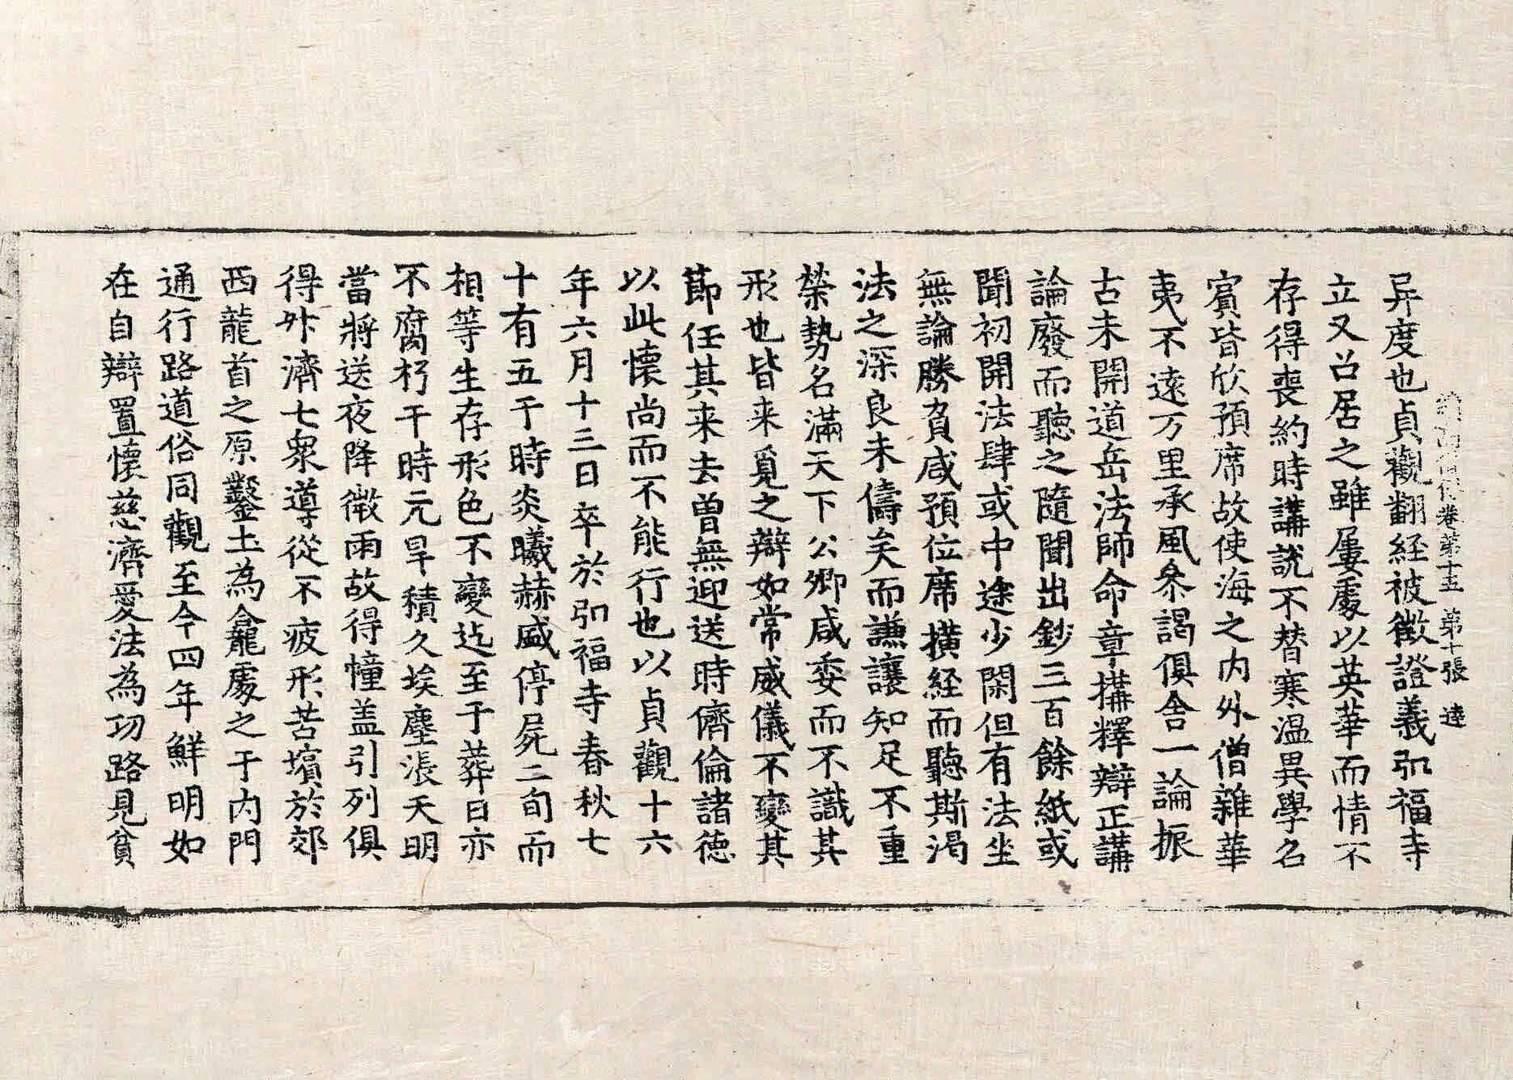 續高僧傳卷第十五 第十張 逵
异度也貞觀翻経被徵證義弘福寺
立又召居之雖屢處以英華而情不
存得喪約時講說不替寒温異學名
賓皆欣預席故使海之內外僧雜華
夷不遠万里承風叅謁俱舍一論振
古未開道岳法師命章搆釋辯正講
論廢而聽之隨聞出鈔三百餘紙或
聞初開法肆或中途少閑但有法坐
無論勝負咸預位席橫経而聽斯渴
法之深良未儔矣而謙讓知足不重
榮勢名滿天下公卿咸委而不識其
形也皆来覓之辯如常威儀不變其
莭任其来去曾無迎送時儕倫諸徳
以此懷尚而不能行也以貞觀十六
年六月十三日卒於弘福寺春秋七
十有五于時炎曦赫盛停屍二旬而
相等生存形色不變迄至于葬日亦
不腐朽于時元旱積久埃塵漲天明
當將送夜降微雨故得幢盖引列俱
得升濟七衆導從不疲形苦殯於郊
西龍首之原鑿土為龕處之于內門
通行路道俗同觀至今四年鮮明如
在自辯置懷慈濟愛法為功路見貧